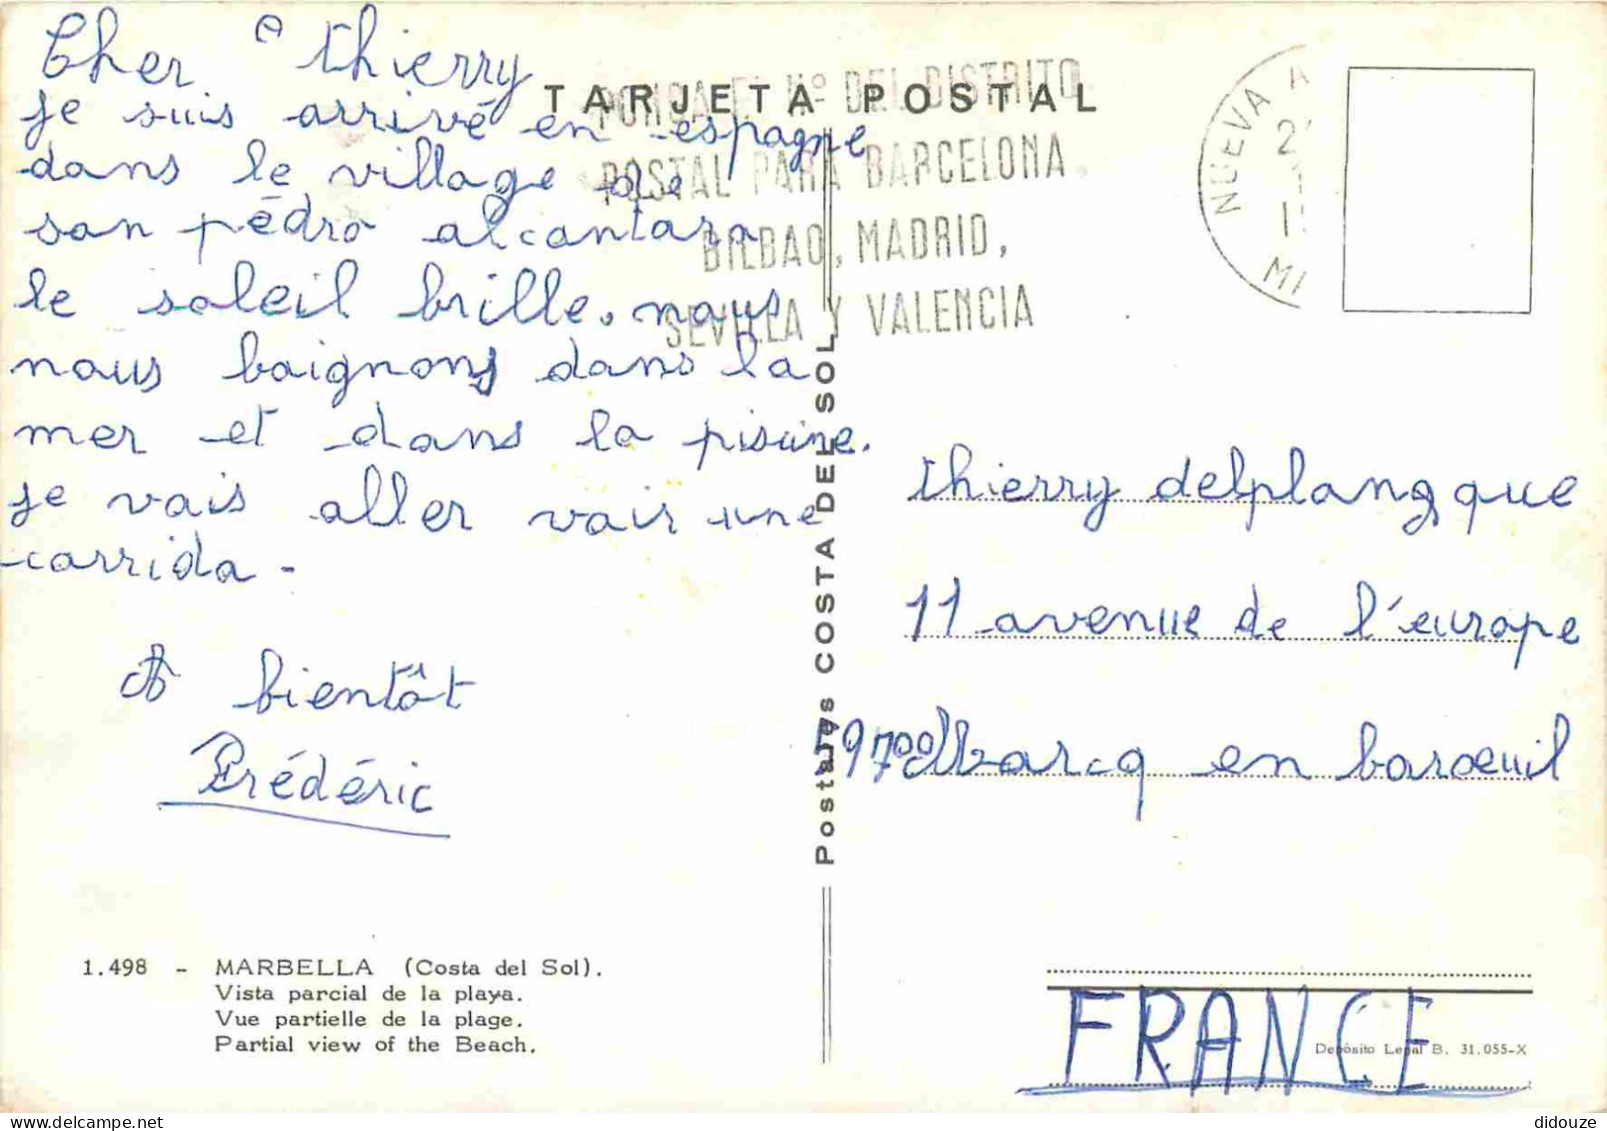 Cher Thierry
je suis arrivé en espagne
dans le village de
san pédro alcantara.
le soleil brille. nous
nous baignons dans la
mer et dans la piscine.
je vais aller voir une
corrida -
A bientôt
Frédéric
1.498 - MARBELLA (Costa del Sol).
Vista parcial de la playa.
Vue partielle de la plage.
Partial view of the Beach.
TARJETA POSTAL
PONGA EL Nº DEL DISTRITO
POSTAL PARA BARCELONA,
BILBAO, MADRID,
SEVILLA Y VALENCIA
NUEVA A
Postales COSTA DEL SOL
thierry delplanque
11 avenue de l'europe
59700 Marcq en baroeuil
FRANCE
Depósito Legal B. 31.055-X
didouze